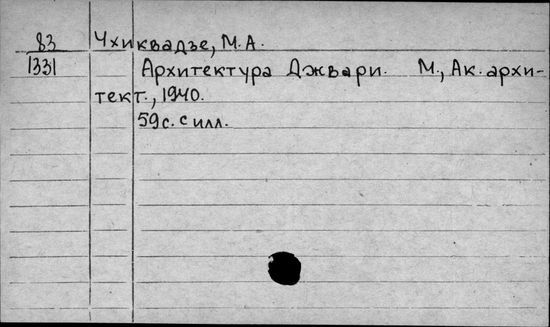 83 Чхиквадзе, М.А.
1331 Архитектура Джвари. М., Ак. архи-
тект., 1940.
59с. с илл.